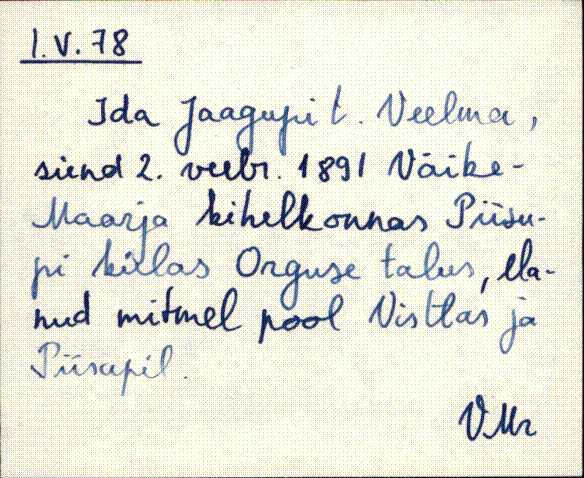 1.V.78
Ida Jaagupi t. Veelma,
siend 2. veebr. 1891 Väike-
Maarja kihelkonnas Piisu-
pi külas Orguse talus, ela-
nud mitmel pool Vistlas ja
Piisupil.
VMr